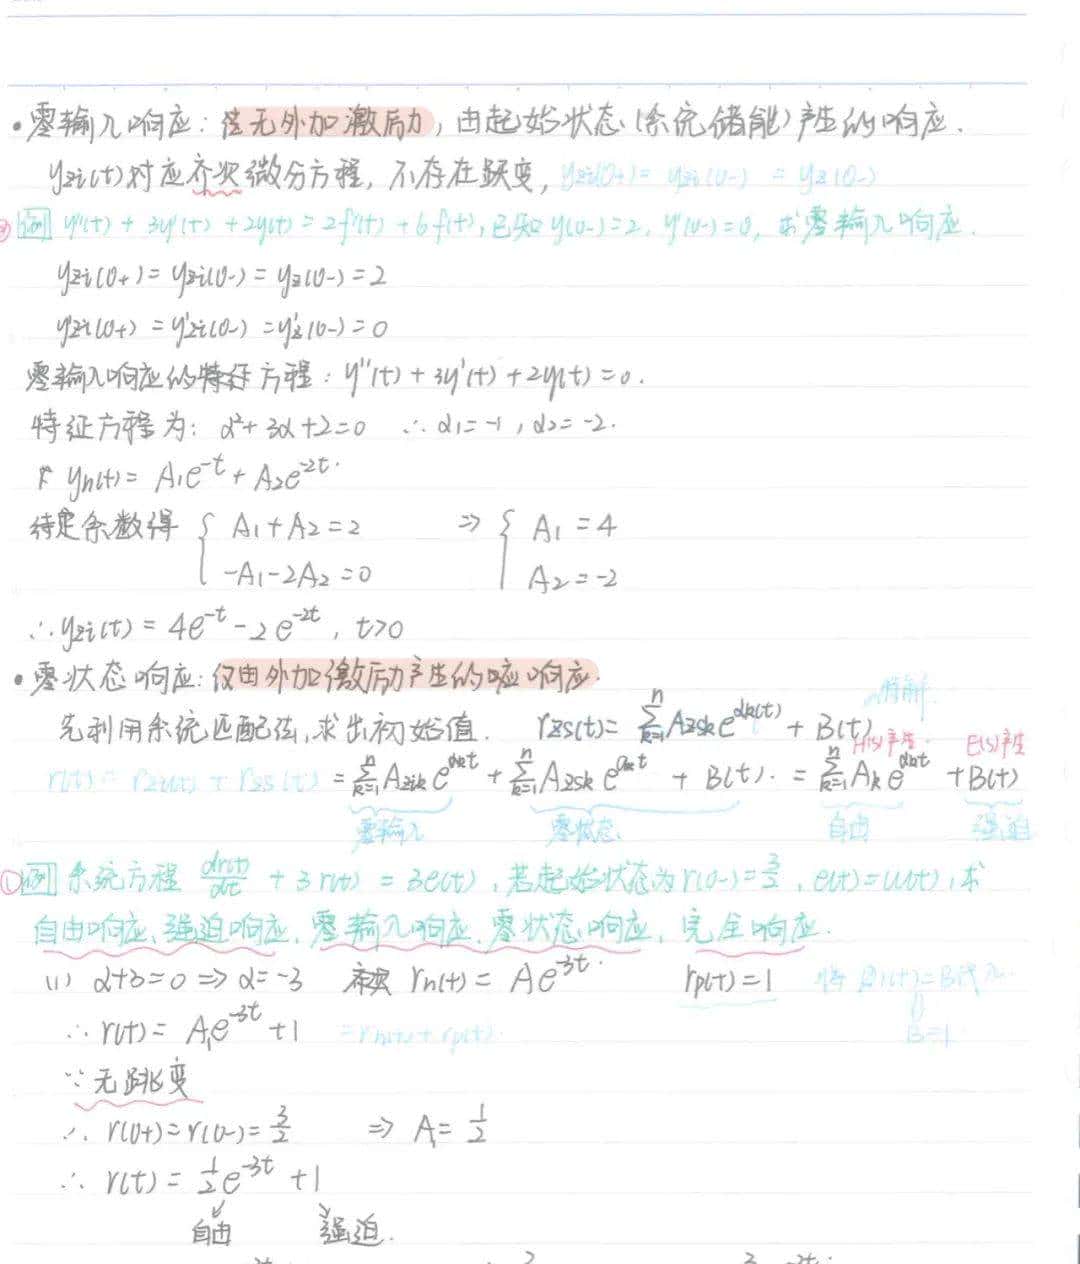 • 零输入响应：没无外加激励，由起始状态(系统储能)产生的响应.
yzi(t)对应齐次微分方程，不存在跃变，yzi(0+)= yzi(0-) = yz(0-)
② 例 y''(t) + 3y'(t) + 2y(t) = 2f'(t) + 6f(t)，已知y(0-)=2，y'(0-)=0，求零输入响应.
yzi(0+) = yzi(0-) = yz(0-) = 2
y'zi(0+) = y'zi(0-) = y'z(0-) = 0
零输入响应的特征方程：y''(t) + 3y'(t) + 2y(t) = 0.
特征方程为：α²+3α+2=0 ∴ α1=-1，α2=-2.
yh(t) = A1e^{-t} + A2e^{-2t}.
待定系数得 { A1+A2=2 ⇒ { A1=4
-A1-2A2=0 A2=-2
∴ yzi(t) = 4e^{-t} - 2e^{-2t}，t>0
• 零状态响应：仅由外加激励产生的响应.
特解
先利用系统匹配法，求出初始值. rzs(t) = Σ_{k=1}^{n} Azsk e^{αk(t)} + B(t)
H(s)产生. E(s)产生
r(t) = rzi(t) + rzs(t) = Σ_{k=1}^{n} Azik e^{αkt} + Σ_{k=1}^{n} Azsk e^{αkt} + B(t). = Σ_{k=1}^{n} Ak e^{αkt} + B(t)
零输入 零状态 自由 强迫
① 例 系统方程 dr(t)/dt + 3r(t) = 3e(t)，若起始状态为r(0-)=3/2，e(t)=u(t)，求
自由响应、强迫响应、零输入响应、零状态响应、完全响应.
(1) α+3=0 ⇒ α=-3 rh(t) = Ae^{-3t}. rp(t)=1 将 (t)=B代入.
∴ r(t) = A1e^{-3t} + 1 = rh(t) + rp(t). B=1
∵ 无跳变
∴ r(0+)=r(0-)=3/2 ⇒ A1=1/2
∴ r(t) = 1/2 e^{-3t} + 1
自由 强迫.